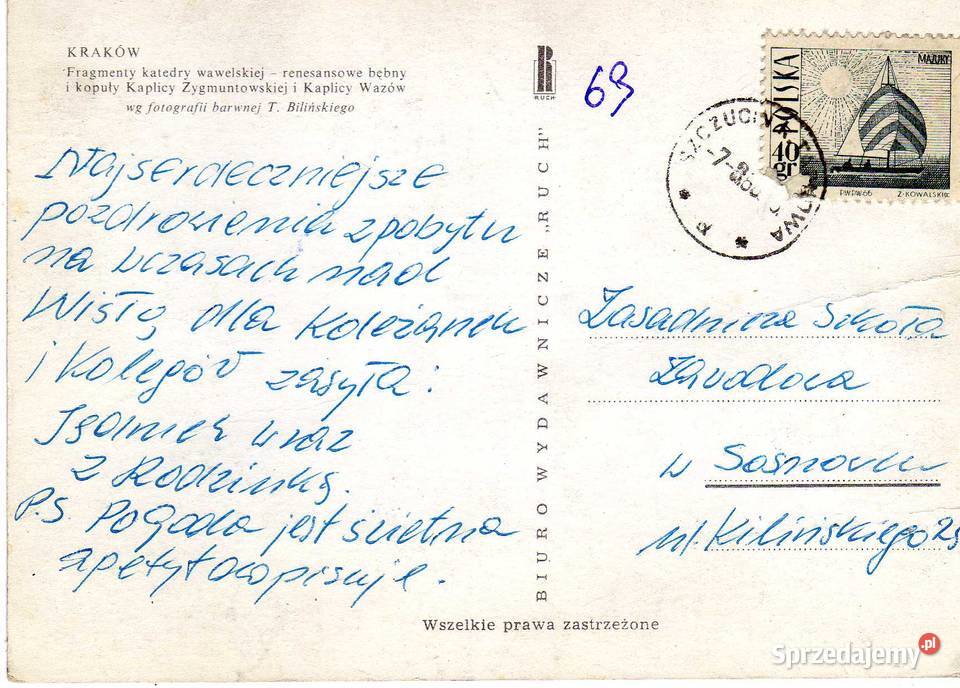 KRAKÓW
Fragmenty katedry wawelskiej – renesansowe bębny
i kopuły Kaplicy Zygmuntowskiej i Kaplicy Wazów
wg fotografii barwnej T. Bilińskiego
RUCH
69
POLSKA
MAZURY
40
gr
PWPW 66
Z. KOWALSKI
SZCZUCIN
TARNOWA
-7-8
Najserdeczniejsze
pozdrowienia z pobytu
na wczasach nad
Wisłą, dla Koleżanek
i Kolegów zasyła:
wraz
z Rodzinką.
P.S. Pogoda jest świetna
apetyt dopisuje.
BIURO WYDAWNICZE „RUCH”
Zasadnicza Szkoła
Zawodowa
w Sosnowcu
ul. Kilińskiego 25
Wszelkie prawa zastrzeżone
Sprzedajemy.pl